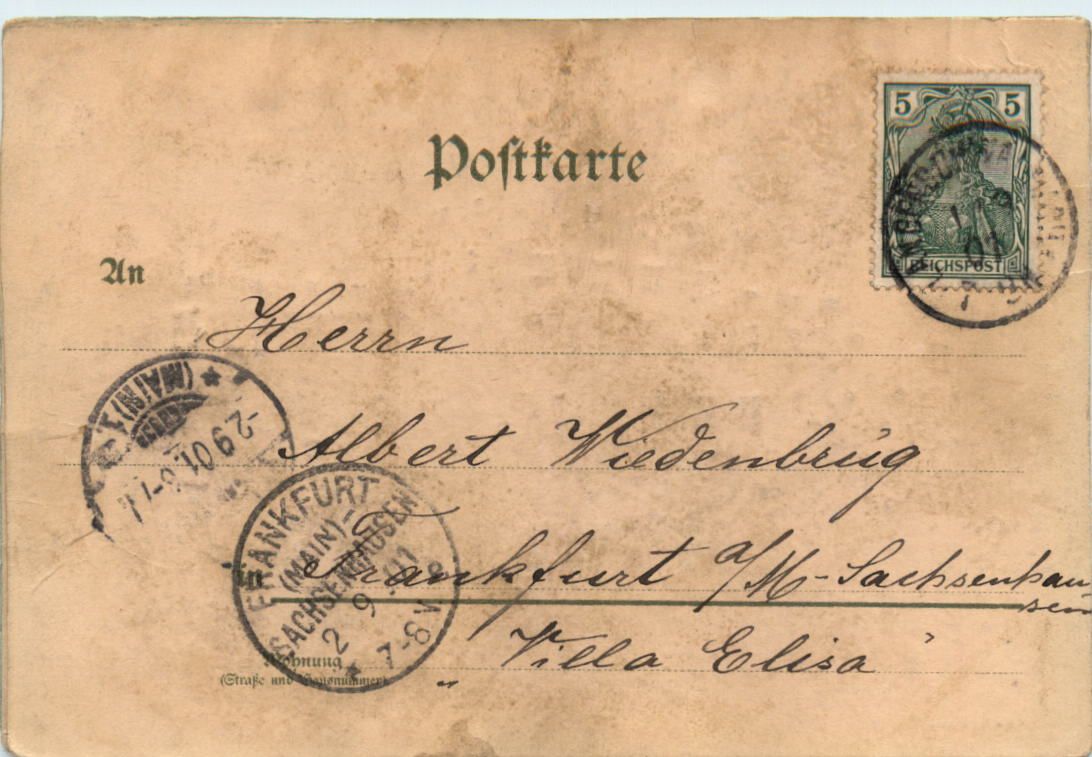 5 5
Postkarte
REICHSPOST
01
An
Herrn
(MAIN) 1
-2 9 01
Albert Wiedenbrüg
FRANKFURT
(MAIN)-
SACHSENHAUSEN
2 9 01
7-8 V
In Frankfurt a/M-Sachsenhau
sen
Wohnung
(Straße und Hausnummer)
„Villa Elisa"